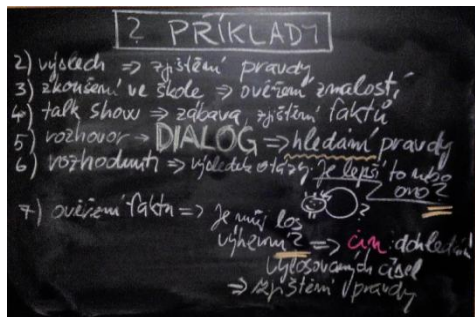 ? PŘÍKLADY
2) výslech ⇒ zjištění pravdy
3) zkoušení ve škole ⇒ ověření znalostí
4) talk show ⇒ zábava, zjištění faktů
5) rozhovor → DIALOG ⇒ hledání pravdy
6) rozhodnutí ⇒ výsledek otázky: Je lepší to nebo
ono?
?
7) ověření faktu ⇒ Je můj los
výherní? ⇒ čin: dohledání
vylosovaných čísel
⇒ zjištění pravdy